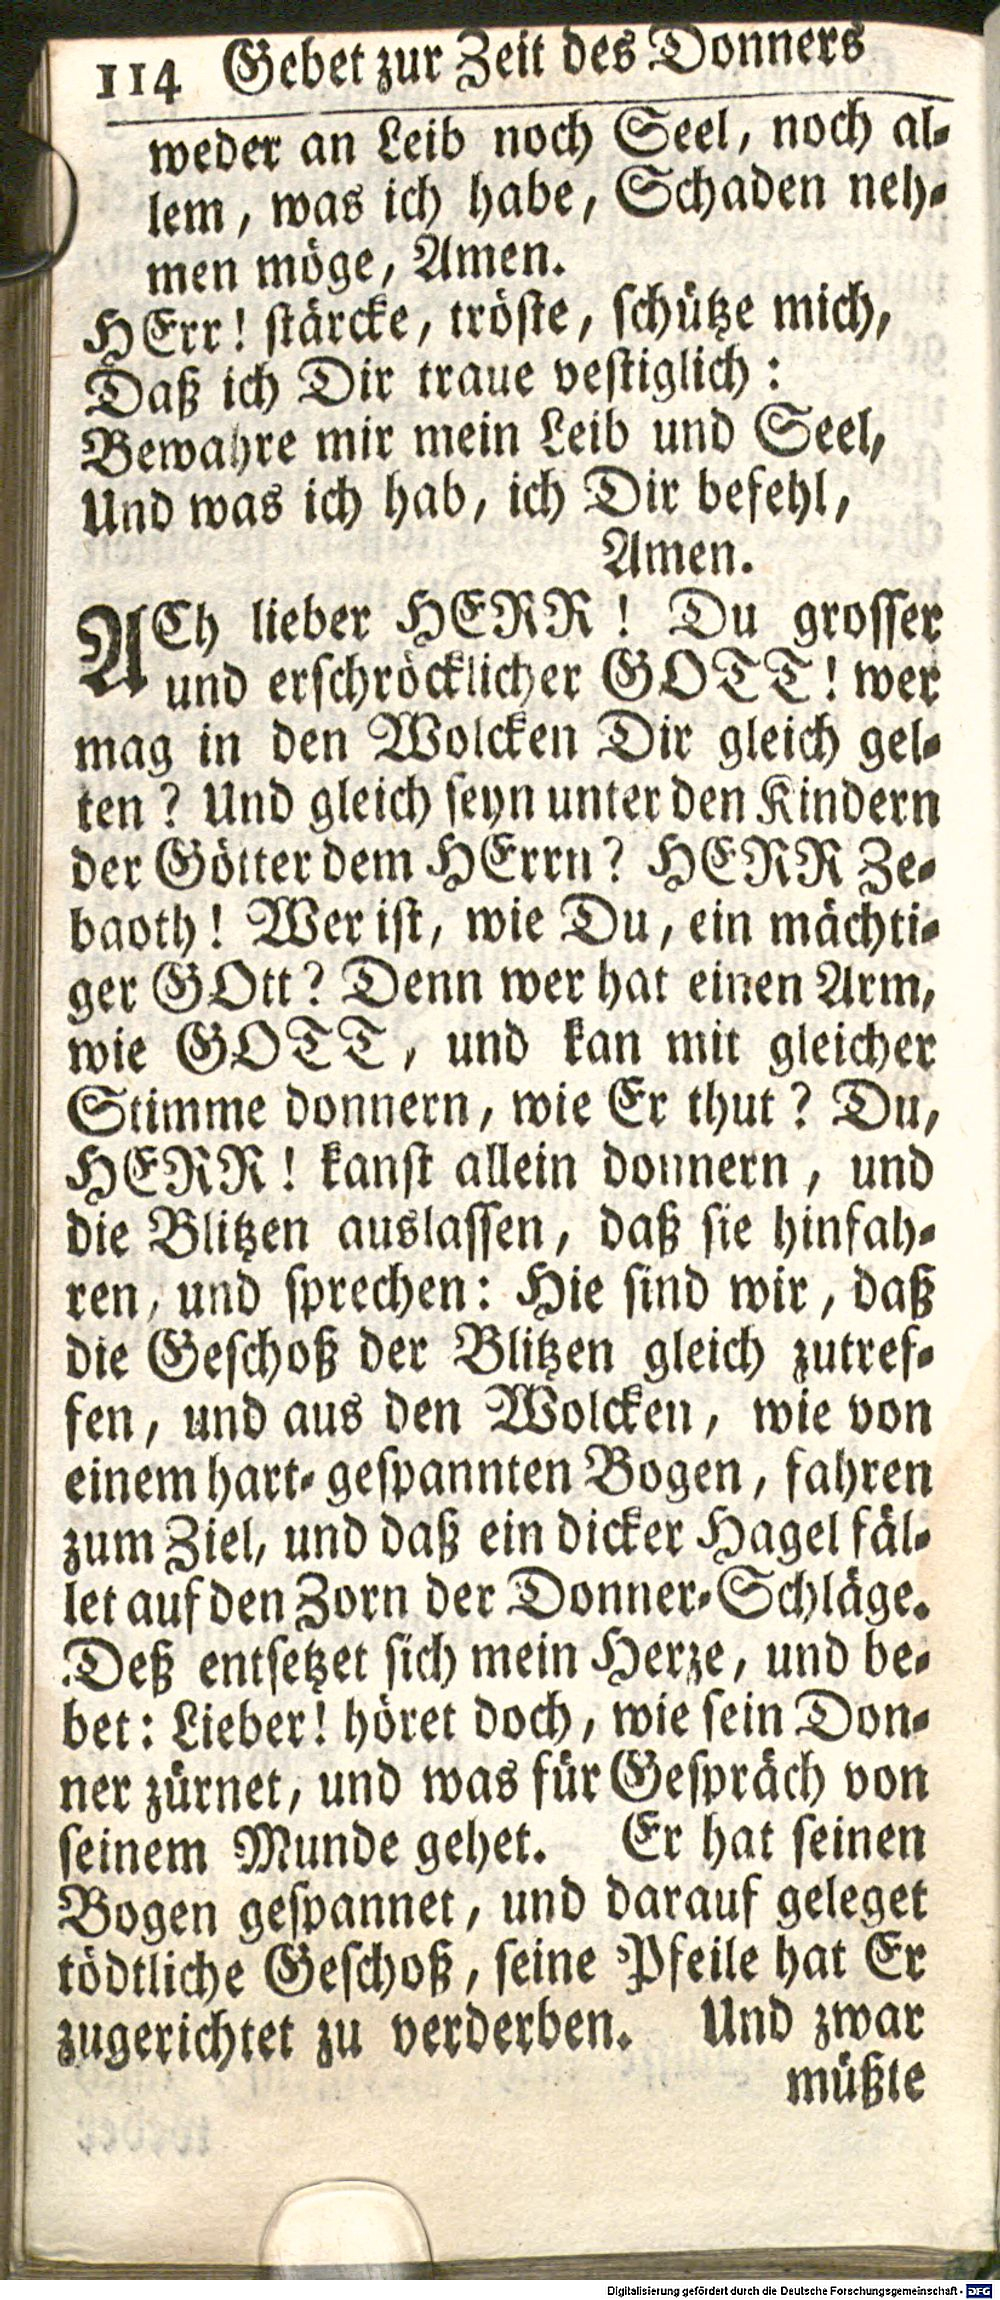 114 Gebet zur Zeit des Donners
weder an Leib noch Seel, noch al-
lem, was ich habe, Schaden neh-
men möge, Amen.
HErr! stärcke, tröste, schütze mich,
Daß ich Dir traue vestiglich:
Bewahre mir mein Leib und Seel,
Und was ich hab, ich Dir befehl,
Amen.
ACh lieber HERR! Du grosser
und erschröcklicher GOTT! wer
mag in den Wolcken Dir gleich gel-
ten? Und gleich seyn unter den Kindern
der Götter dem HErrn? HERR Ze-
baoth! Wer ist, wie Du, ein mächti-
ger GOtt? Denn wer hat einen Arm,
wie GOTT, und kan mit gleicher
Stimme donnern, wie Er thut? Du,
HERR! kanst allein donnern, und
die Blitzen auslassen, daß sie hinfah-
ren, und sprechen: Hie sind wir, daß
die Geschoß der Blitzen gleich zutref-
fen, und aus den Wolcken, wie von
einem hart-gespannten Bogen, fahren
zum Ziel, und daß ein dicker Hagel fäl-
let auf den Zorn der Donner-Schläge.
Deß entsetzet sich mein Herze, und be-
bet: Lieber! höret doch, wie sein Don-
ner zürnet, und was für Gespräch von
seinem Munde gehet. Er hat seinen
Bogen gespannet, und darauf geleget
tödtliche Geschoß, seine Pfeile hat Er
zugerichtet zu verderben. Und zwar
müßte
Digitalisierung gefördert durch die Deutsche Forschungsgemeinschaft - DFG